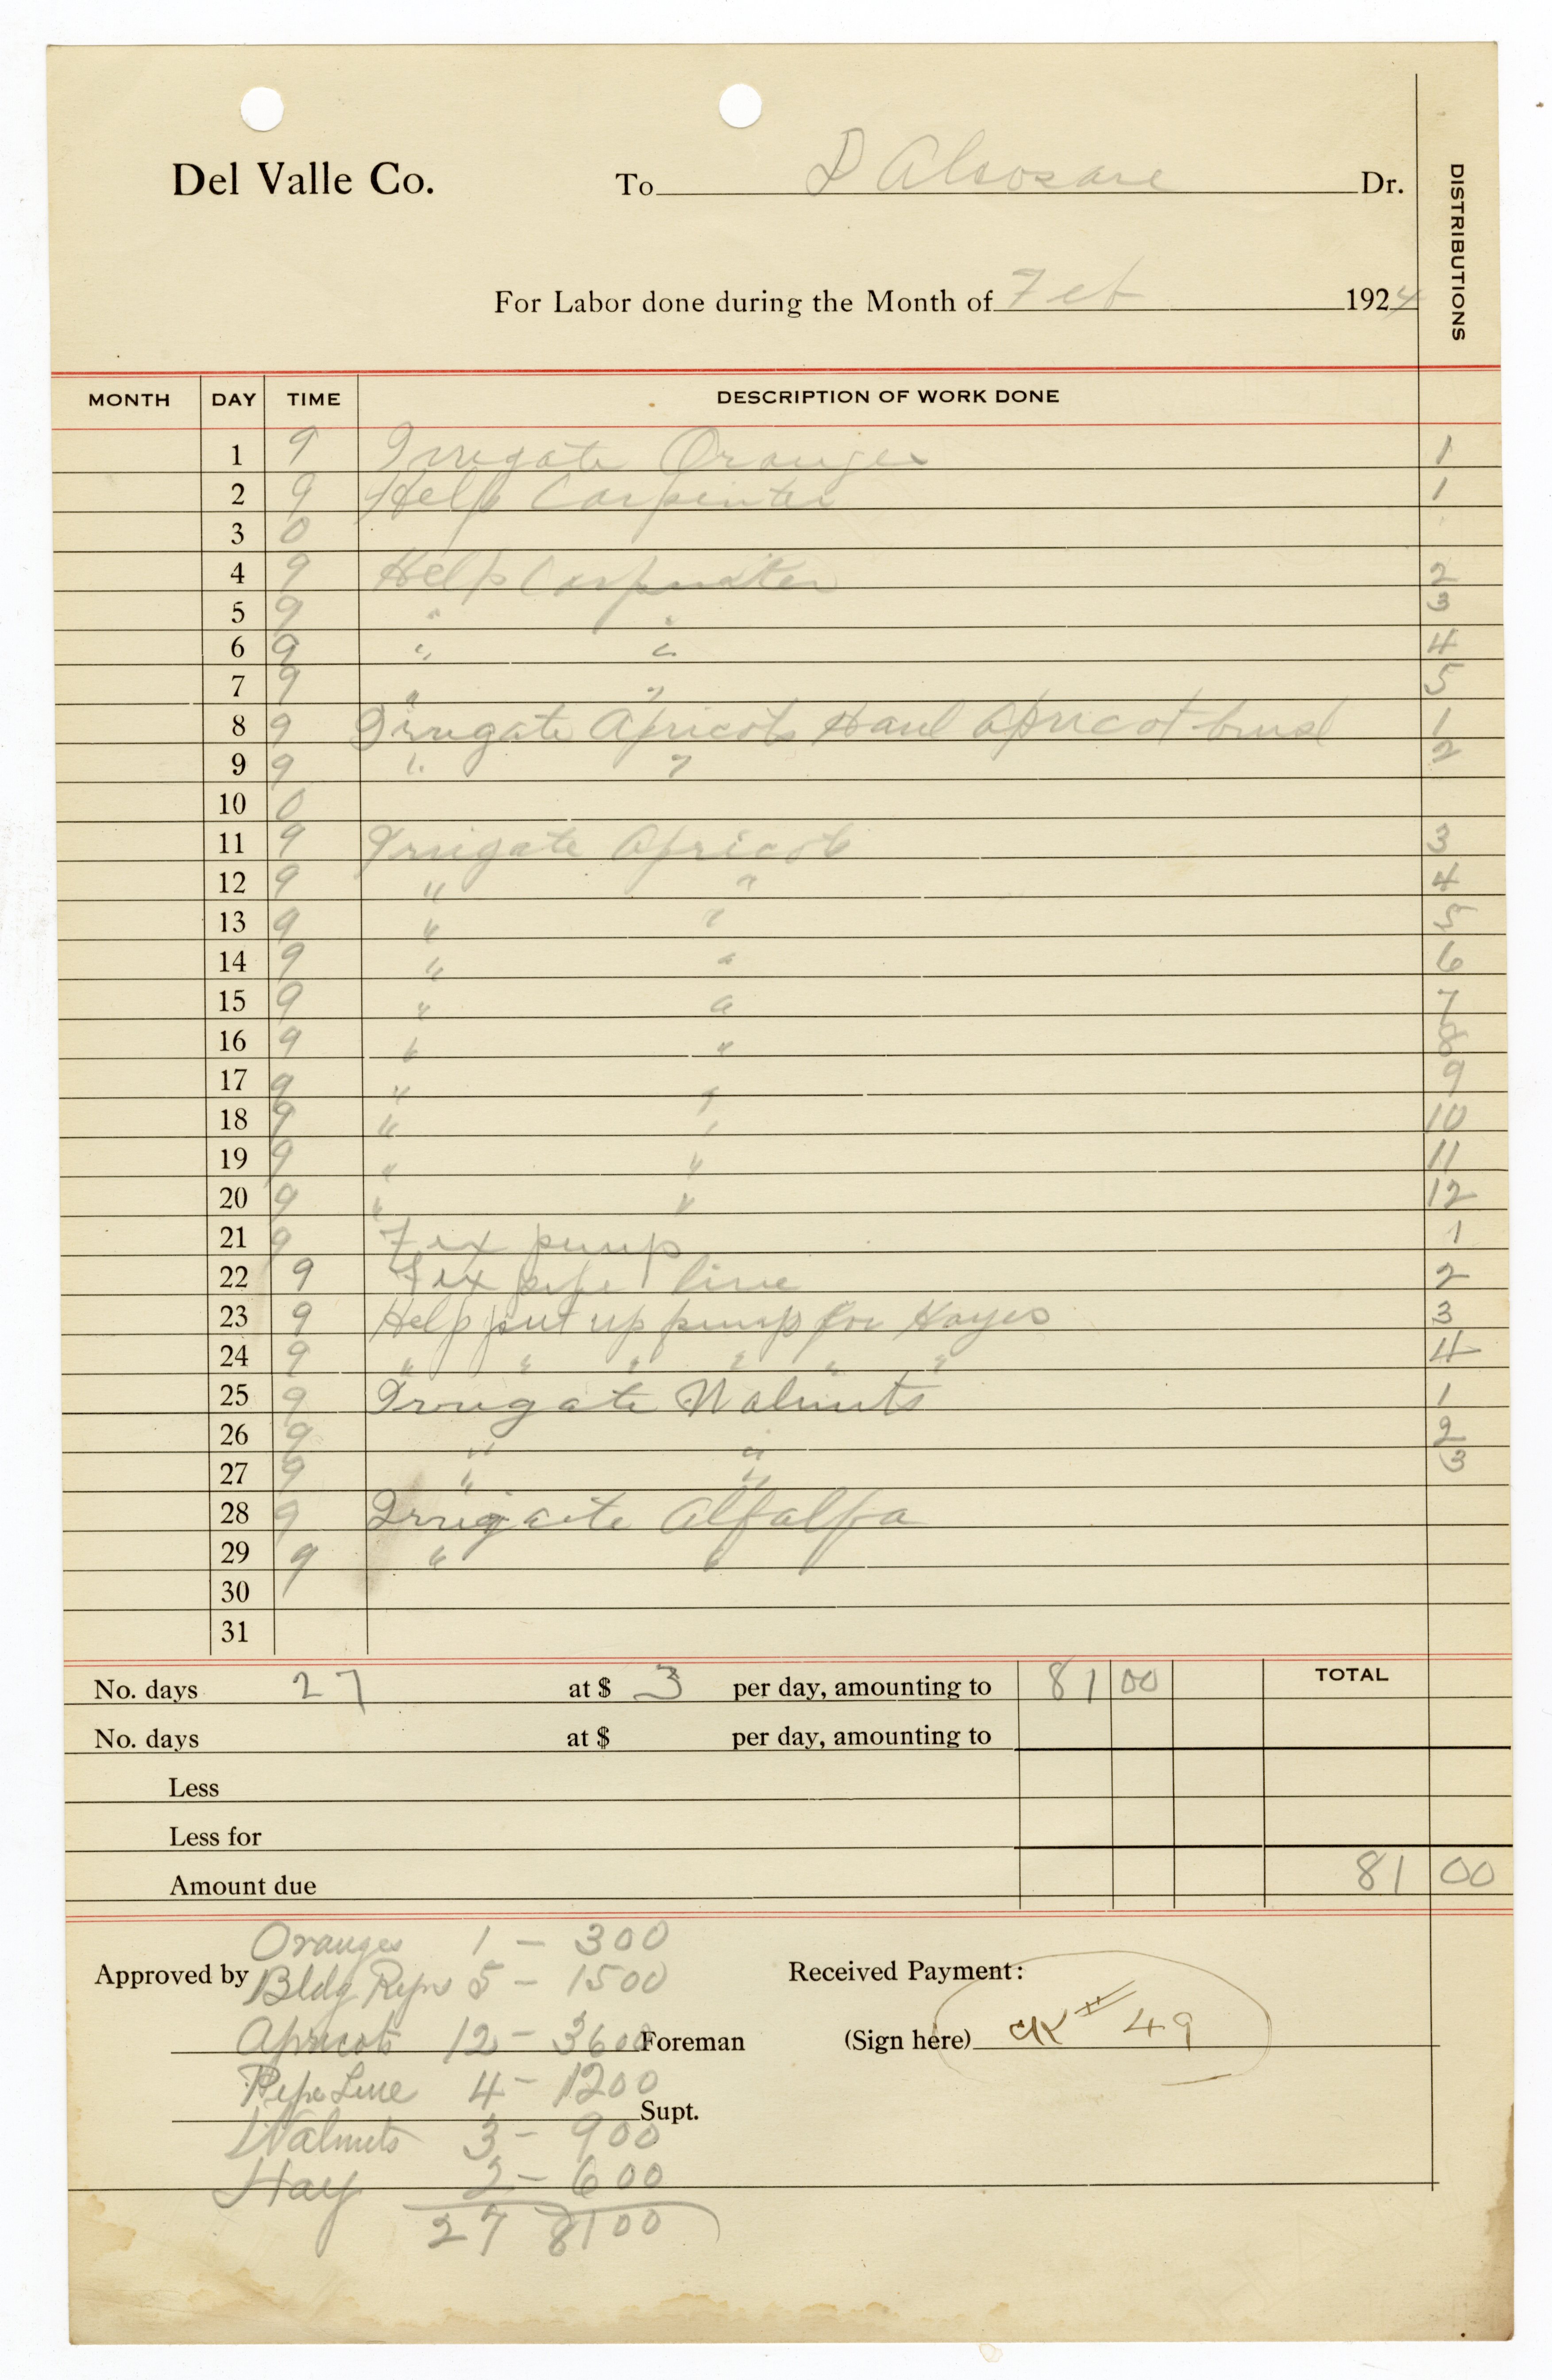 Del Valle Co. To D Alsosare Dr.
DISTRIBUTIONS
For Labor done during the Month of Feb 1924
MONTH DAY TIME DESCRIPTION OF WORK DONE
1 9 Irrigate Oranges 1
2 9 Help Carpenter 1
3 0
4 9 Help Carpenter 2
5 9 " " 3
6 9 " " 4
7 9 " " 5
8 9 Irrigate Apricots Haul Apricot brush 1
9 9 " " 2
10 0
11 9 Irrigate Apricots 3
12 9 " " 4
13 9 " " 5
14 9 " " 6
15 9 " " 7
16 9 " " 8
17 9 " " 9
18 9 " " 10
19 9 " " 11
20 9 " " 12
21 9 Fix pump 1
22 9 Fix pipe line 2
23 9 Help put up pump for Hayes 3
24 9 " " " " " " 4
25 9 Irrigate Walnuts 1
26 9 " " 2
27 9 " " 3
28 9 Irrigate Alfalfa
29 9 " "
30
31
No. days 27 at $ 3 per day, amounting to 81 00 TOTAL
No. days at $ per day, amounting to
Less
Less for
Amount due 81 00
Oranges 1 - 300
Approved by Bldg Reprs 5 - 1500 Received Payment:
Apricots 12 - 3600 Foreman (Sign here) CK # 49
Pipe Line 4 - 1200
Supt.
Walnuts 3 - 900
Hay 2 - 600
27 8100